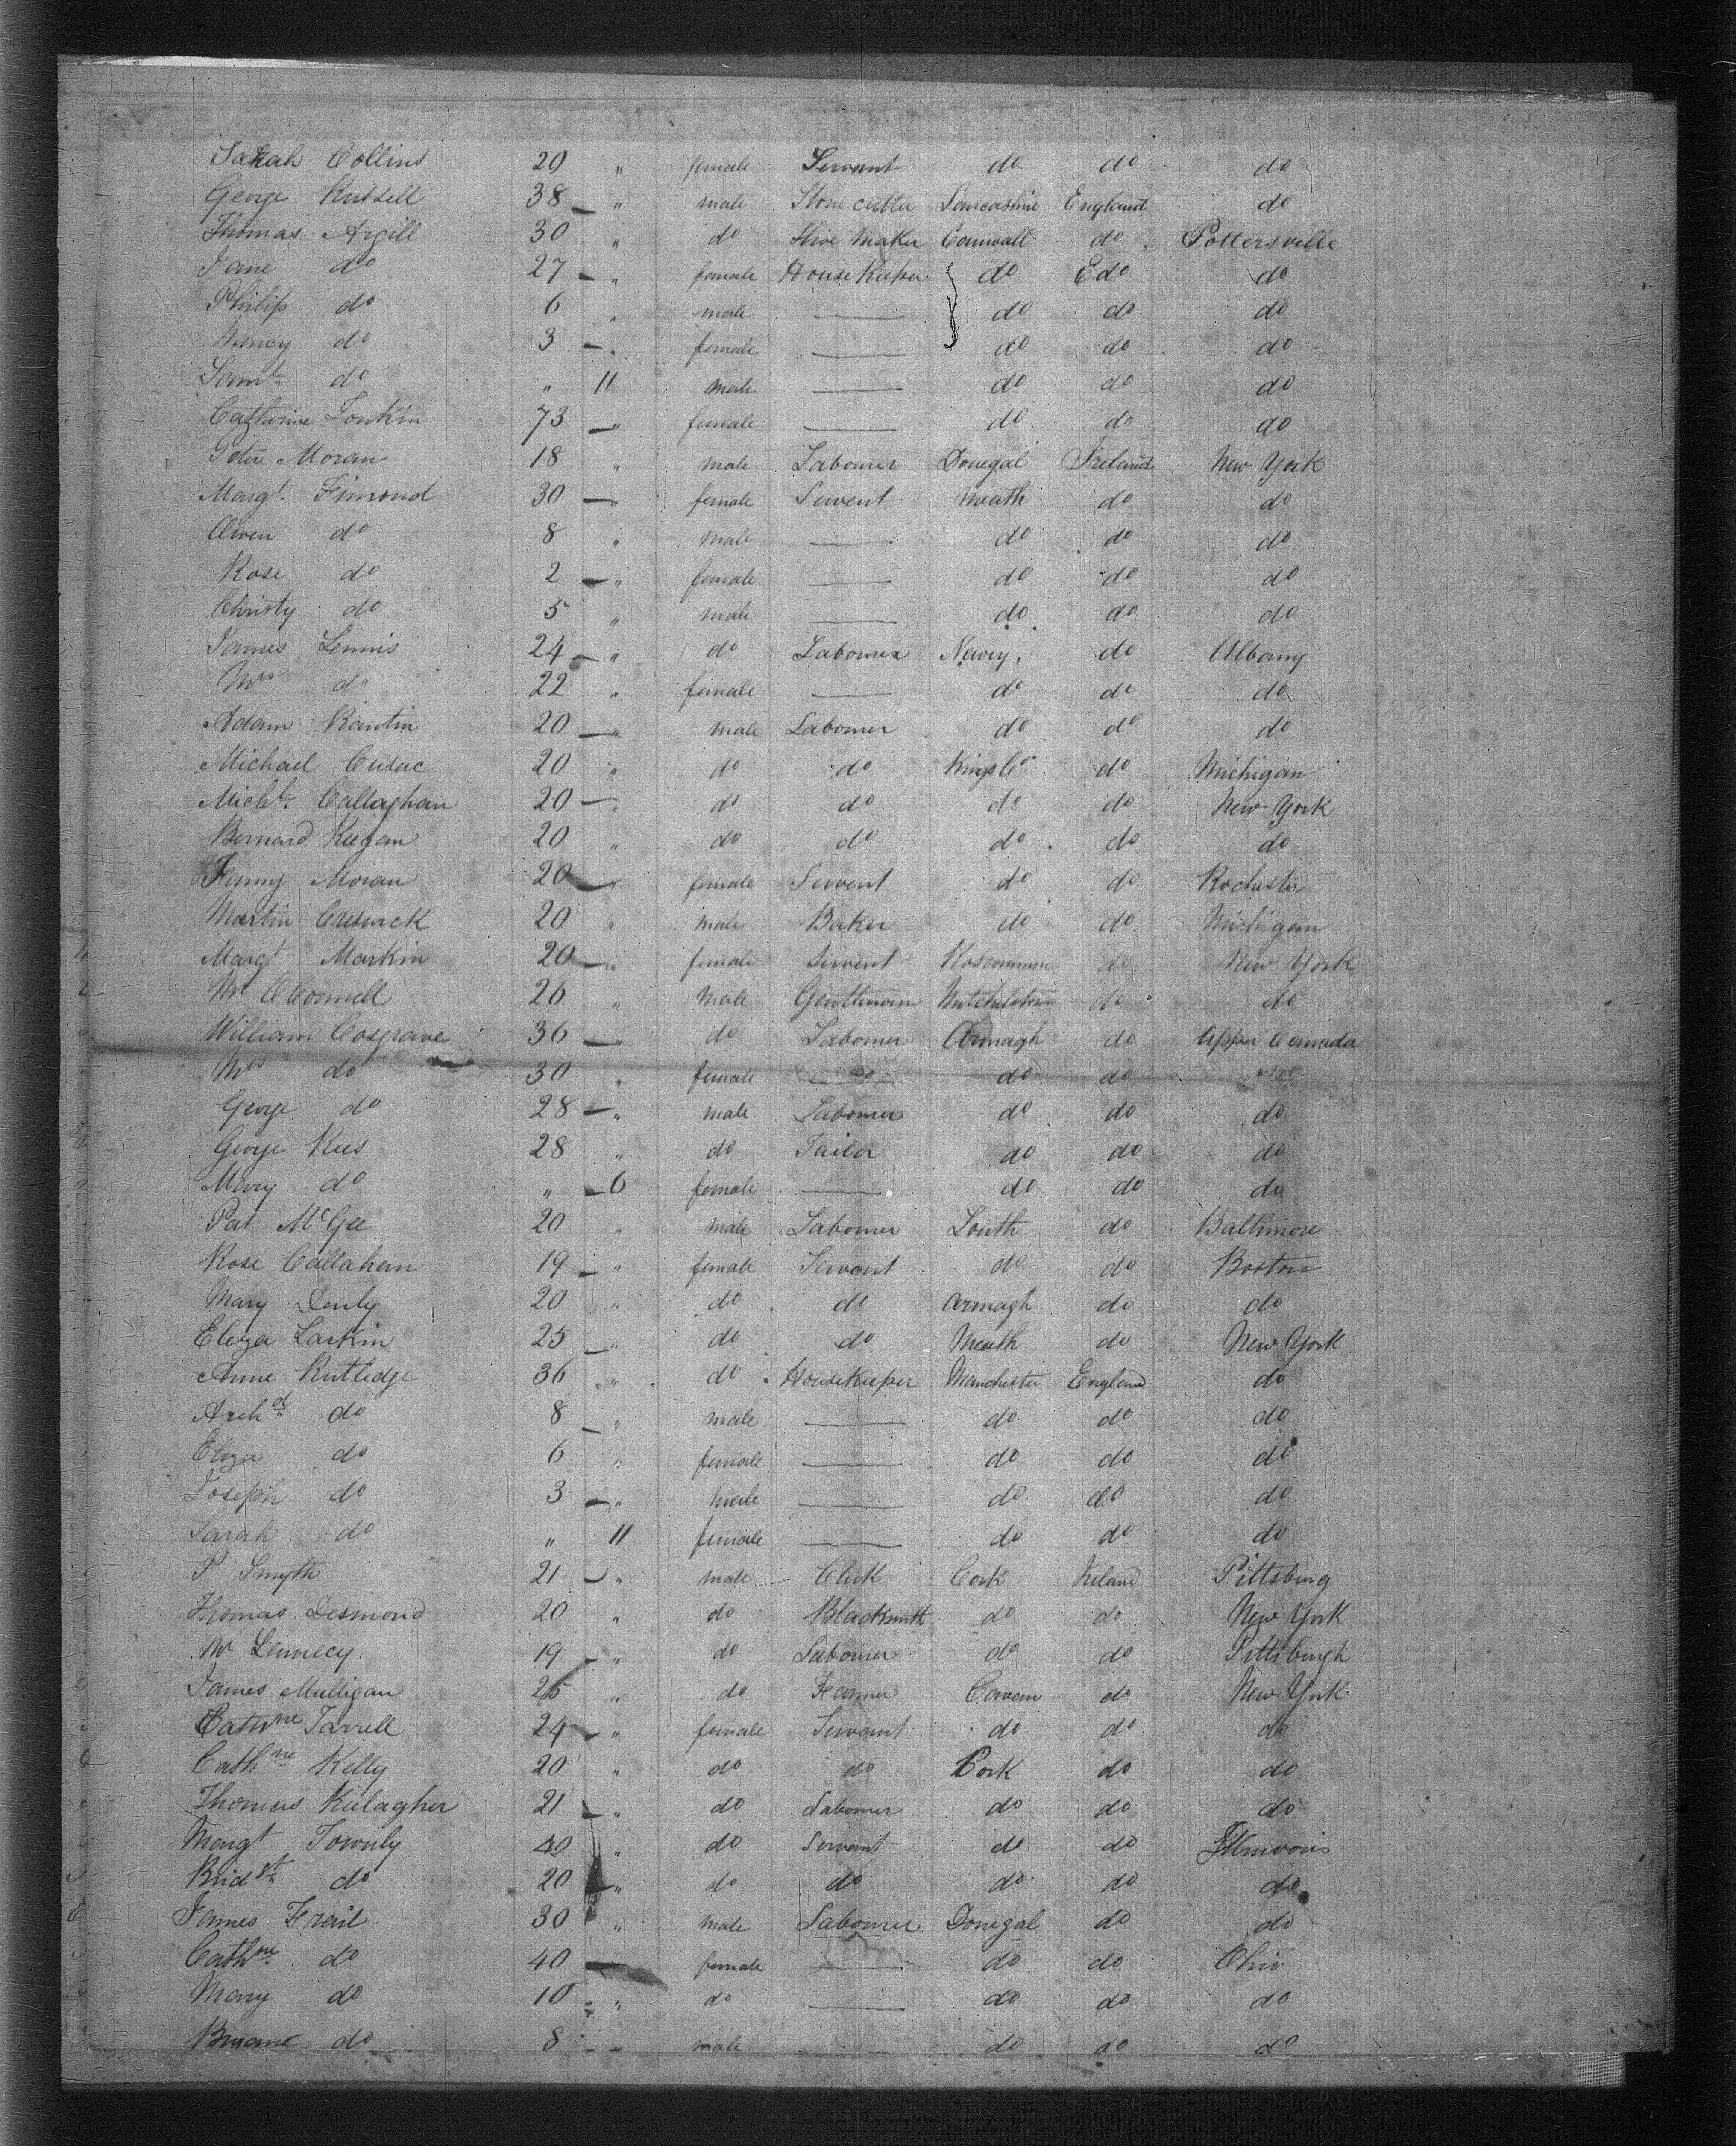 Sarah Collins 20 " female Servant do do do
George Russell 38 " male Stone cutter Lancashire England do
Thomas Argill 30 " do Shoe Maker Cornwall do Pottersville
Jane do 27 " female House Keeper do do do
Philip do 6 " male — do do do
Nancy do 3 " female — do do do
Saml. do " 11 male — do do do
Catherine Tonkin 73 " female — do do do
Peter Moran 18 " male Labourer Donegal Ireland New York
Margt. Fimond 30 " female Servent Meath do do
Owen do 8 " male — do do do
Rose do 2 " female — do do do
Christy do 5 " male — do do do
James Lennis 24 " do Labourer Newry do Albany
Mrs do 22 " female — do do do
Adam Rantin 20 " male Labourer do do do
Michael Cusac 20 " do do Kings Co do Michigan
Michl. Callaghan 20 " do do do do New York
Bernard Keegan 20 " do do do do do
Fanny Moran 20 " female Servent do do Rochester
Martin 20 " male Baker do do Michigan
Margt Markin 20 " female Servent Roscommon do New York
Mr OConnell 26 " male Gentleman Mitchelstown do do
William Cosgrave 36 " do Labourer Armagh do Upper Canada
Mrs do 30 " female — do do
George do 28 " male Labourer do do do
George Rees 28 " do Tailor do do do
Mary do " 6 female — do do do
Pat McGee 20 " male Labourer Louth do Baltimore
Rose Callahan 19 " female Servant do do Boston
Mary Denly 20 " do do Armagh do do
Eleza Larkin 25 " do do Meath do New York
Anne Rutledge 36 " do HouseKeeper Manchester England do
Archd do 8 " male — do do do
Eliza do 6 " female — do do do
Joseph do 3 " male — do do do
Sarah do " 11 female — do do do
P Smyth 21 " male Clerk Cork Ireland Pittsburg
Thomas Desmond 20 " do Blacksmith do do New York
Mr 19 " do Labourer do do Pittsburgh
James Mulligan 25 " do Farmer Cavan do New York
Cathne Farrell 24 " female Servant do do do
Cathne Kelly 20 " do do Cork do do
Thomas Kelagher 21 " do Labourer do do do
Margt Townly 40 " do Servant do do
Bridgt do 20 " do do do do do
James Frail 30 " male Labourer Donegal do do
Cathne do 40 female — do do Ohio
Mary do 10 " do — do do do
do 8 " male do do do